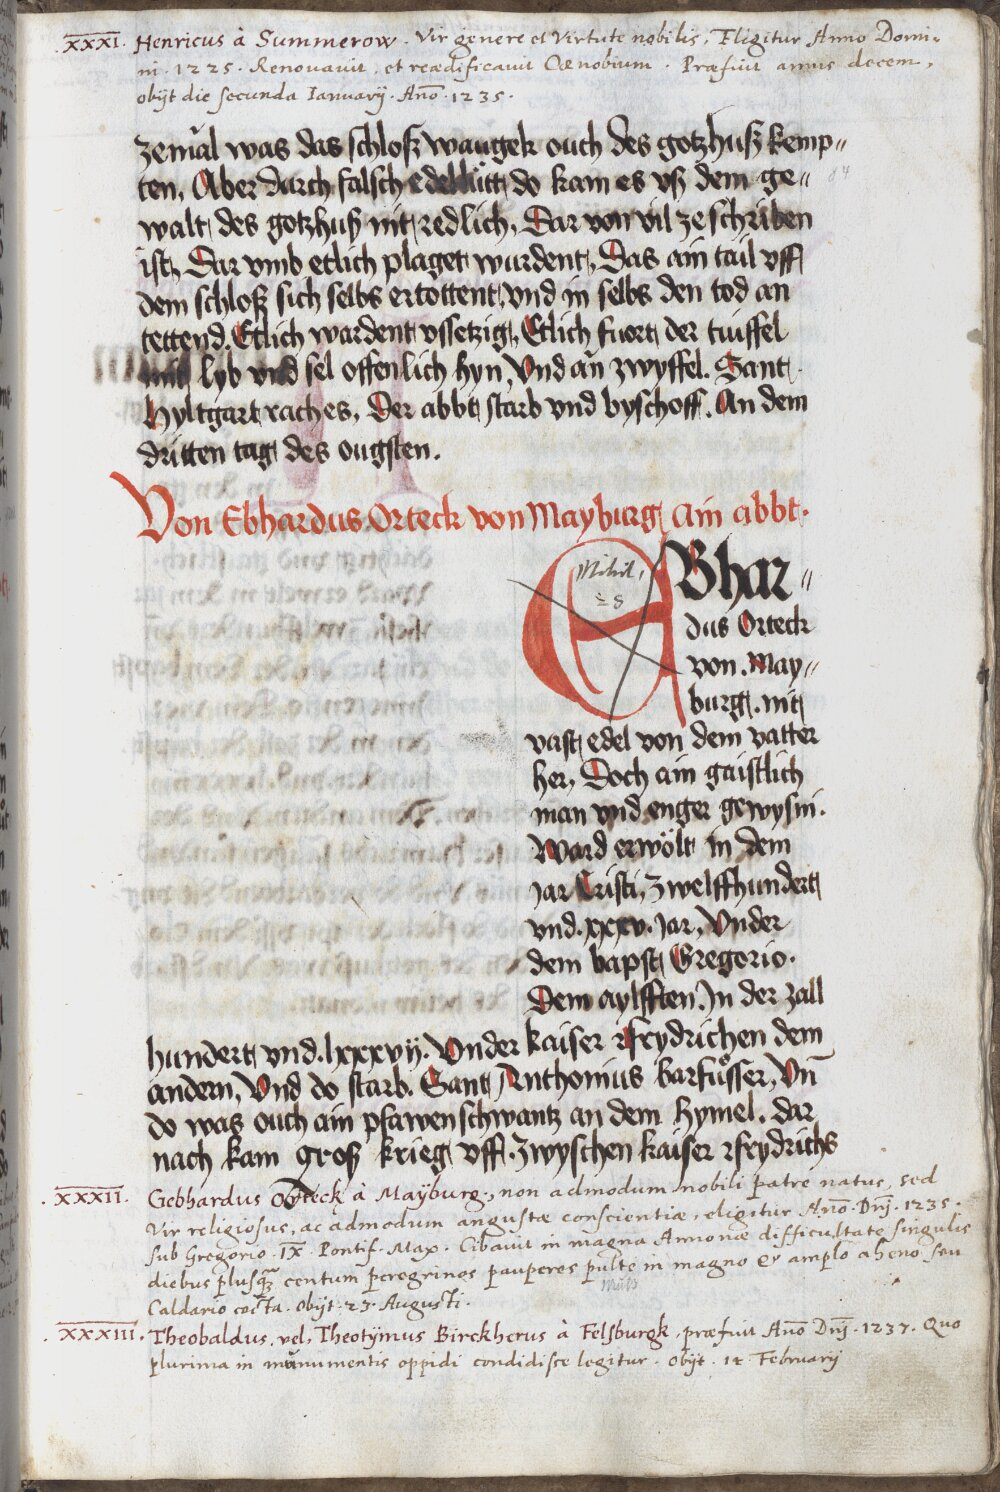 .XXXI. Henricus à Summerow. Vir genere et Virtute nobilis, Eligitur Anno Domi-
ni. 1225. Renovavit, et reædificavit Cœnobium. Præfuit annis decem,
obijt die secunda Ianuarij. Año. 1235.
zemal was das schloß waugek ouch des gotzhuß kemp„
ten, Aber durch falsch edellütt do kam es vß dem ge„
walt des gotzhuß nit redlich, Dar von vil ze schriben
ist, Dar vmb etlich plaget wurdent, Das ain tail vff
dem schloß sich selbs ertottent, vnd in selbs den tod an
tettend. Etlich wurdent vssetzig, Etlich fuort der tuiffel
mit lyb vnd sel offenlich hyn, Vnd an zwyffel. Sant
Hyltgart rach es, Der abbt starb vnd byschoff. An dem
dritten tag des ougsten.
Von Ebhardus Orteck von Mayburg Ain abbt.
EBhar„
dus Orteck
von. May„
burg. nit
vast edel von dem vatter
her, Doch ain gaistlich
man vnd enger gewyssni.
Ward erwölt in dem
Jar Cristi, zwelffhundert
vnd. xxxv. Jar, Vnder
dem bapst Gregorio.
Dem aylfften. In der zall
hundert vnd. lxxxvij. Vnder kaiser Frydrichen dem
andern, Vnd do starb. Sant Anthonius barfuosser, Vn̄
do was ouch ain pfawenschwantz an dem hymel. dar
nach kam groß krieg vff. zwyschen kaiser Frydrichs
.XXXII. Gebhardus Orteck à Maÿburg, non admodum nobili patre natus, sed
Vir religiosus, ac admodum angustæ conscientiæ, eligitur Año. Dnj. 1235.
sub Gregorio. IX. Pontif. Max. Cibavit in magna Annonæ difficultate singulis
diebus plusq̃ centum peregrinos pauperes pulte in magno et amplo aheno seu
Caldario cocta. Obijt. 23. Augusti.
.XXXIII. Theobaldus, vel, Theotÿmus Birckherus à Felsburgk, præfuit Año Dnj. 1237. Quo
plurima in munumentis oppidi condidisse legitur. obijt. 14. February